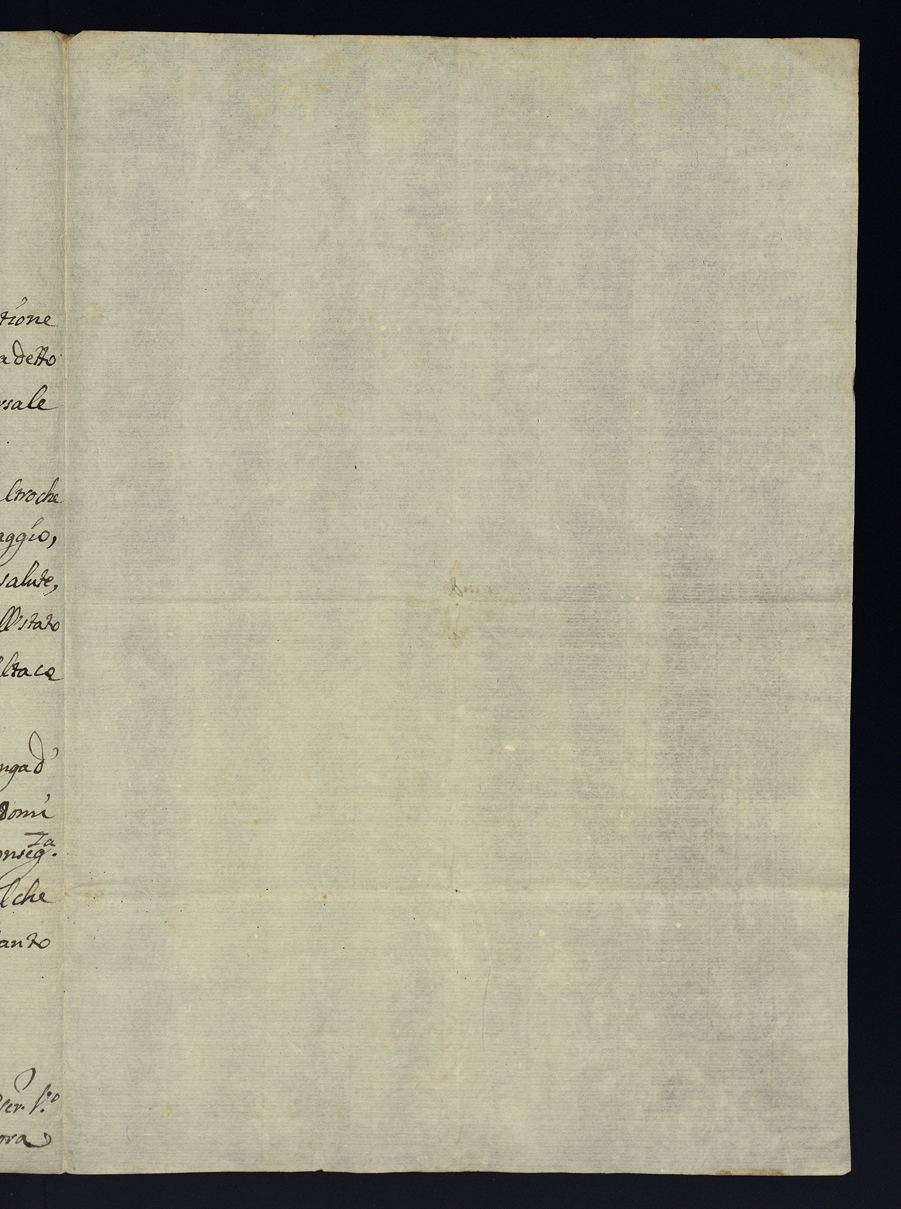 tione
a detto
rsale
ltro che
aggio,
salute,
ll'stato
lta ca
nga d'
domi
onseg.za
l che
anto
ser. s.o
ora